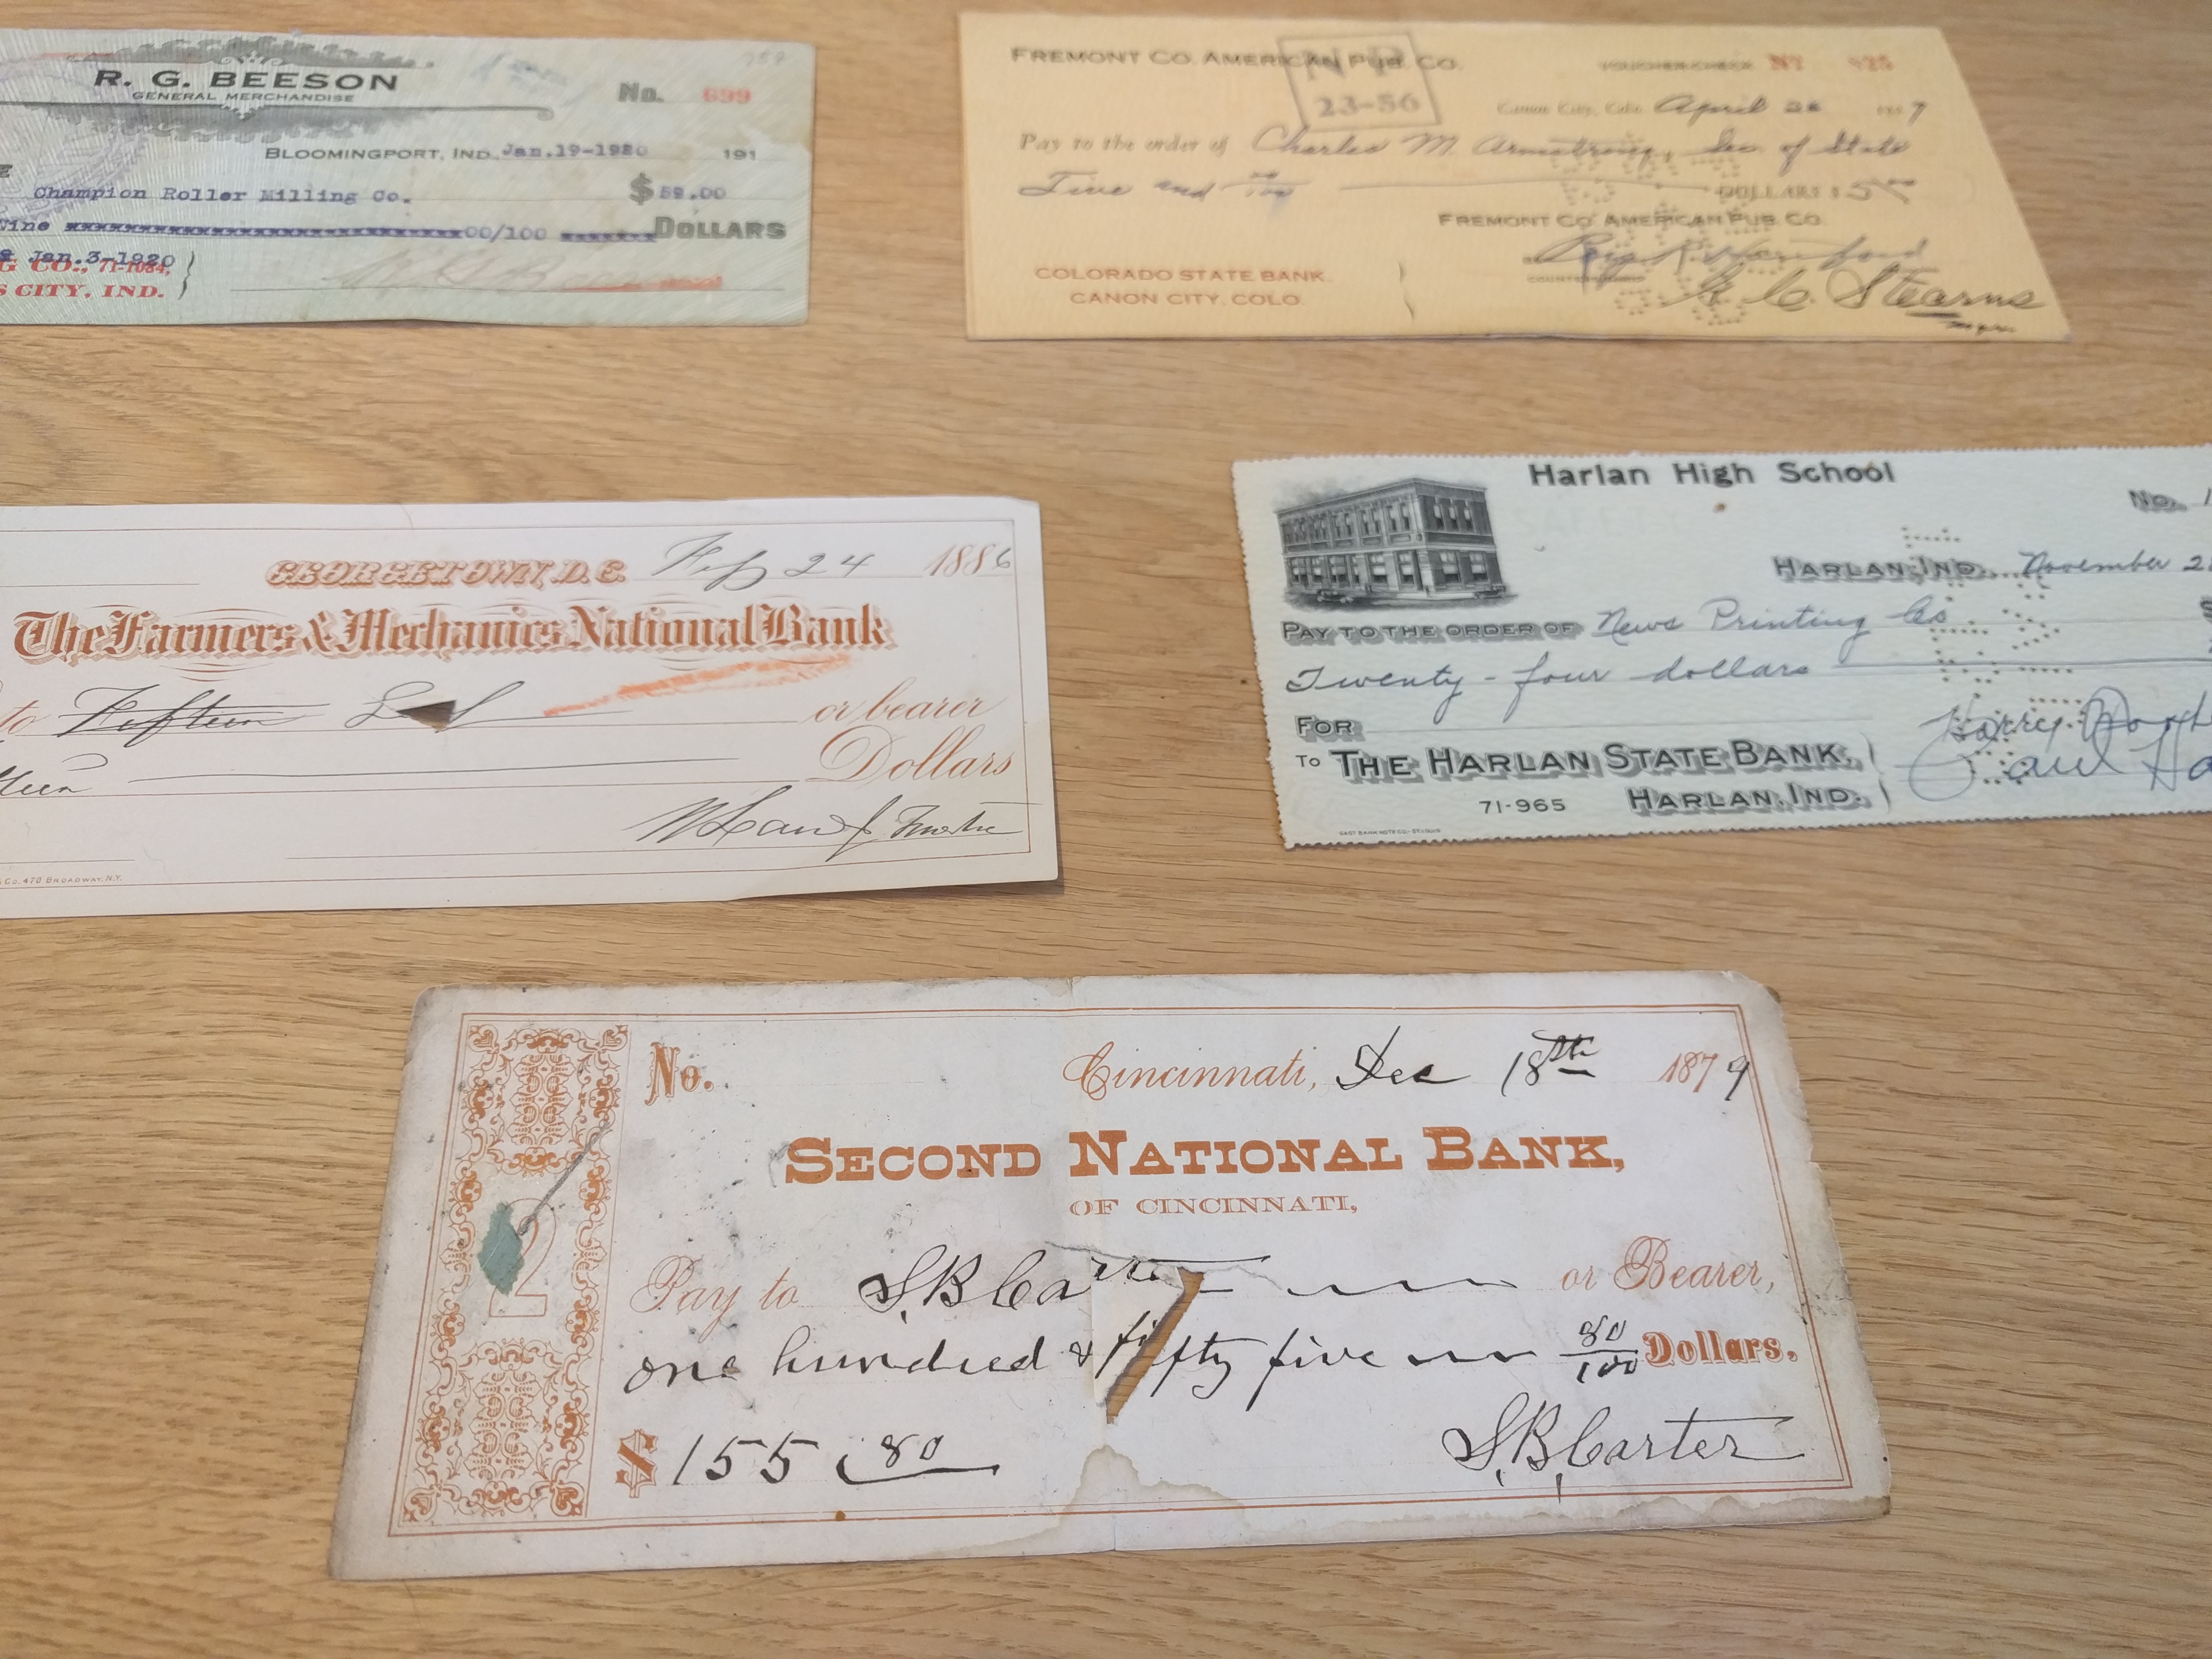 R. G. BEESON
GENERAL MERCHANDISE
No. 699
BLOOMINGPORT, IND. Jan.19-1920 191
Champion Roller Milling Co. $59.00
Nine 00/100 DOLLARS
Jan.3-1920
G CO., 71-1084,
S CITY, IND.
FREMONT CO. AMERICAN PUB. CO.
VOUCHER CHECK No
23-56
Canon City, Colo. April 26 7
Pay to the order of Charles M. Armstrong, Sec of State
Five and 00/100 DOLLARS $ 5 00
FREMONT CO. AMERICAN PUB. CO.
COLORADO STATE BANK.
CANON CITY, COLO.
COUNTERSIGNED
K. C. Stearns
Mgr.
GEORGETOWN, D.C. Feb 24 1886
The Farmers & Mechanics National Bank
to Fifteen or bearer
teen Dollars
Co. 478 BROADWAY, N.Y.
Harlan High School
No. 1
HARLAN, IND. November 2
PAY TO THE ORDER OF News Printing Co $
Twenty - four dollars
FOR
TO THE HARLAN STATE BANK,
71-965 HARLAN, IND.
Harry
Paul Ha
No. Cincinnati, Dec 18th 1879
SECOND NATIONAL BANK,
OF CINCINNATI,
2
Pay to S.B. Carter or Bearer,
one hundred & fifty five 80/100 Dollars.
$ 155.80
S.B. Carter